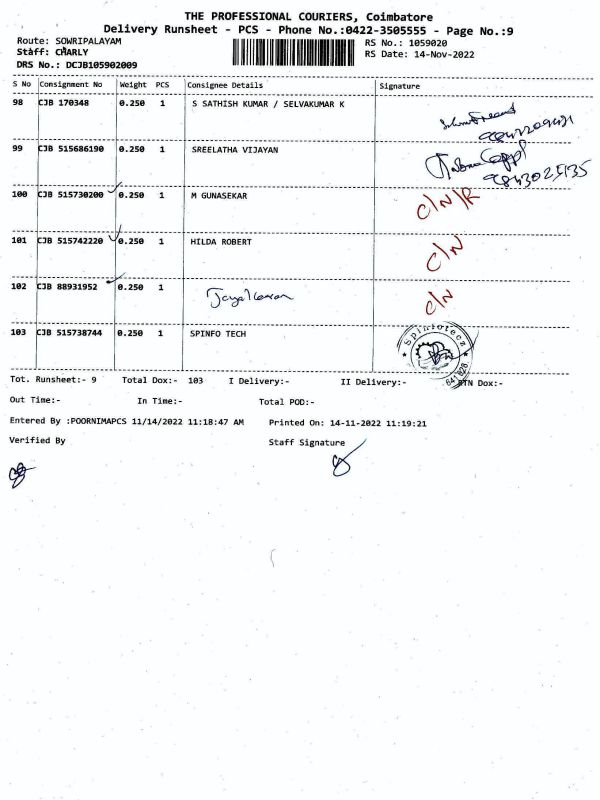 THE PROFESSIONAL COURIERS, Coimbatore
Delivery Runsheet - PCS - Phone No.:0422-3505555 - Page No.:9
Route: SOWRIPALAYAM
RS No.: 1059020
Staff: CHARLY
RS Date: 14-Nov-2022
DRS No.: DCJB105902009
S No Consignment No Weight PCS Consignee Details Signature
98 CJB 170348 0.250 1 S SATHISH KUMAR / SELVAKUMAR K
99 CJB 515686190 0.250 1 SREELATHA VIJAYAN
9843025135
100 CJB 515730200 0.250 1 M GUNASEKAR C/N/R
101 CJB 515742220 0.250 1 HILDA ROBERT C/N
102 CJB 88931952 0.250 1 C/N
103 CJB 515738744 0.250 1 SPINFO TECH
Tot. Runsheet:- 9 Total Dox:- 103 I Delivery:- II Delivery:- RTN Dox:-
Out Time:- In Time:- Total POD:-
Entered By :POORNIMAPCS 11/14/2022 11:18:47 AM Printed On: 14-11-2022 11:19:21
Verified By Staff Signature